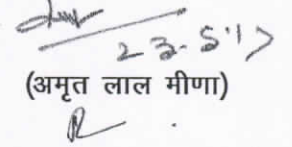 23.5.17
(अमृत लाल मीणा)